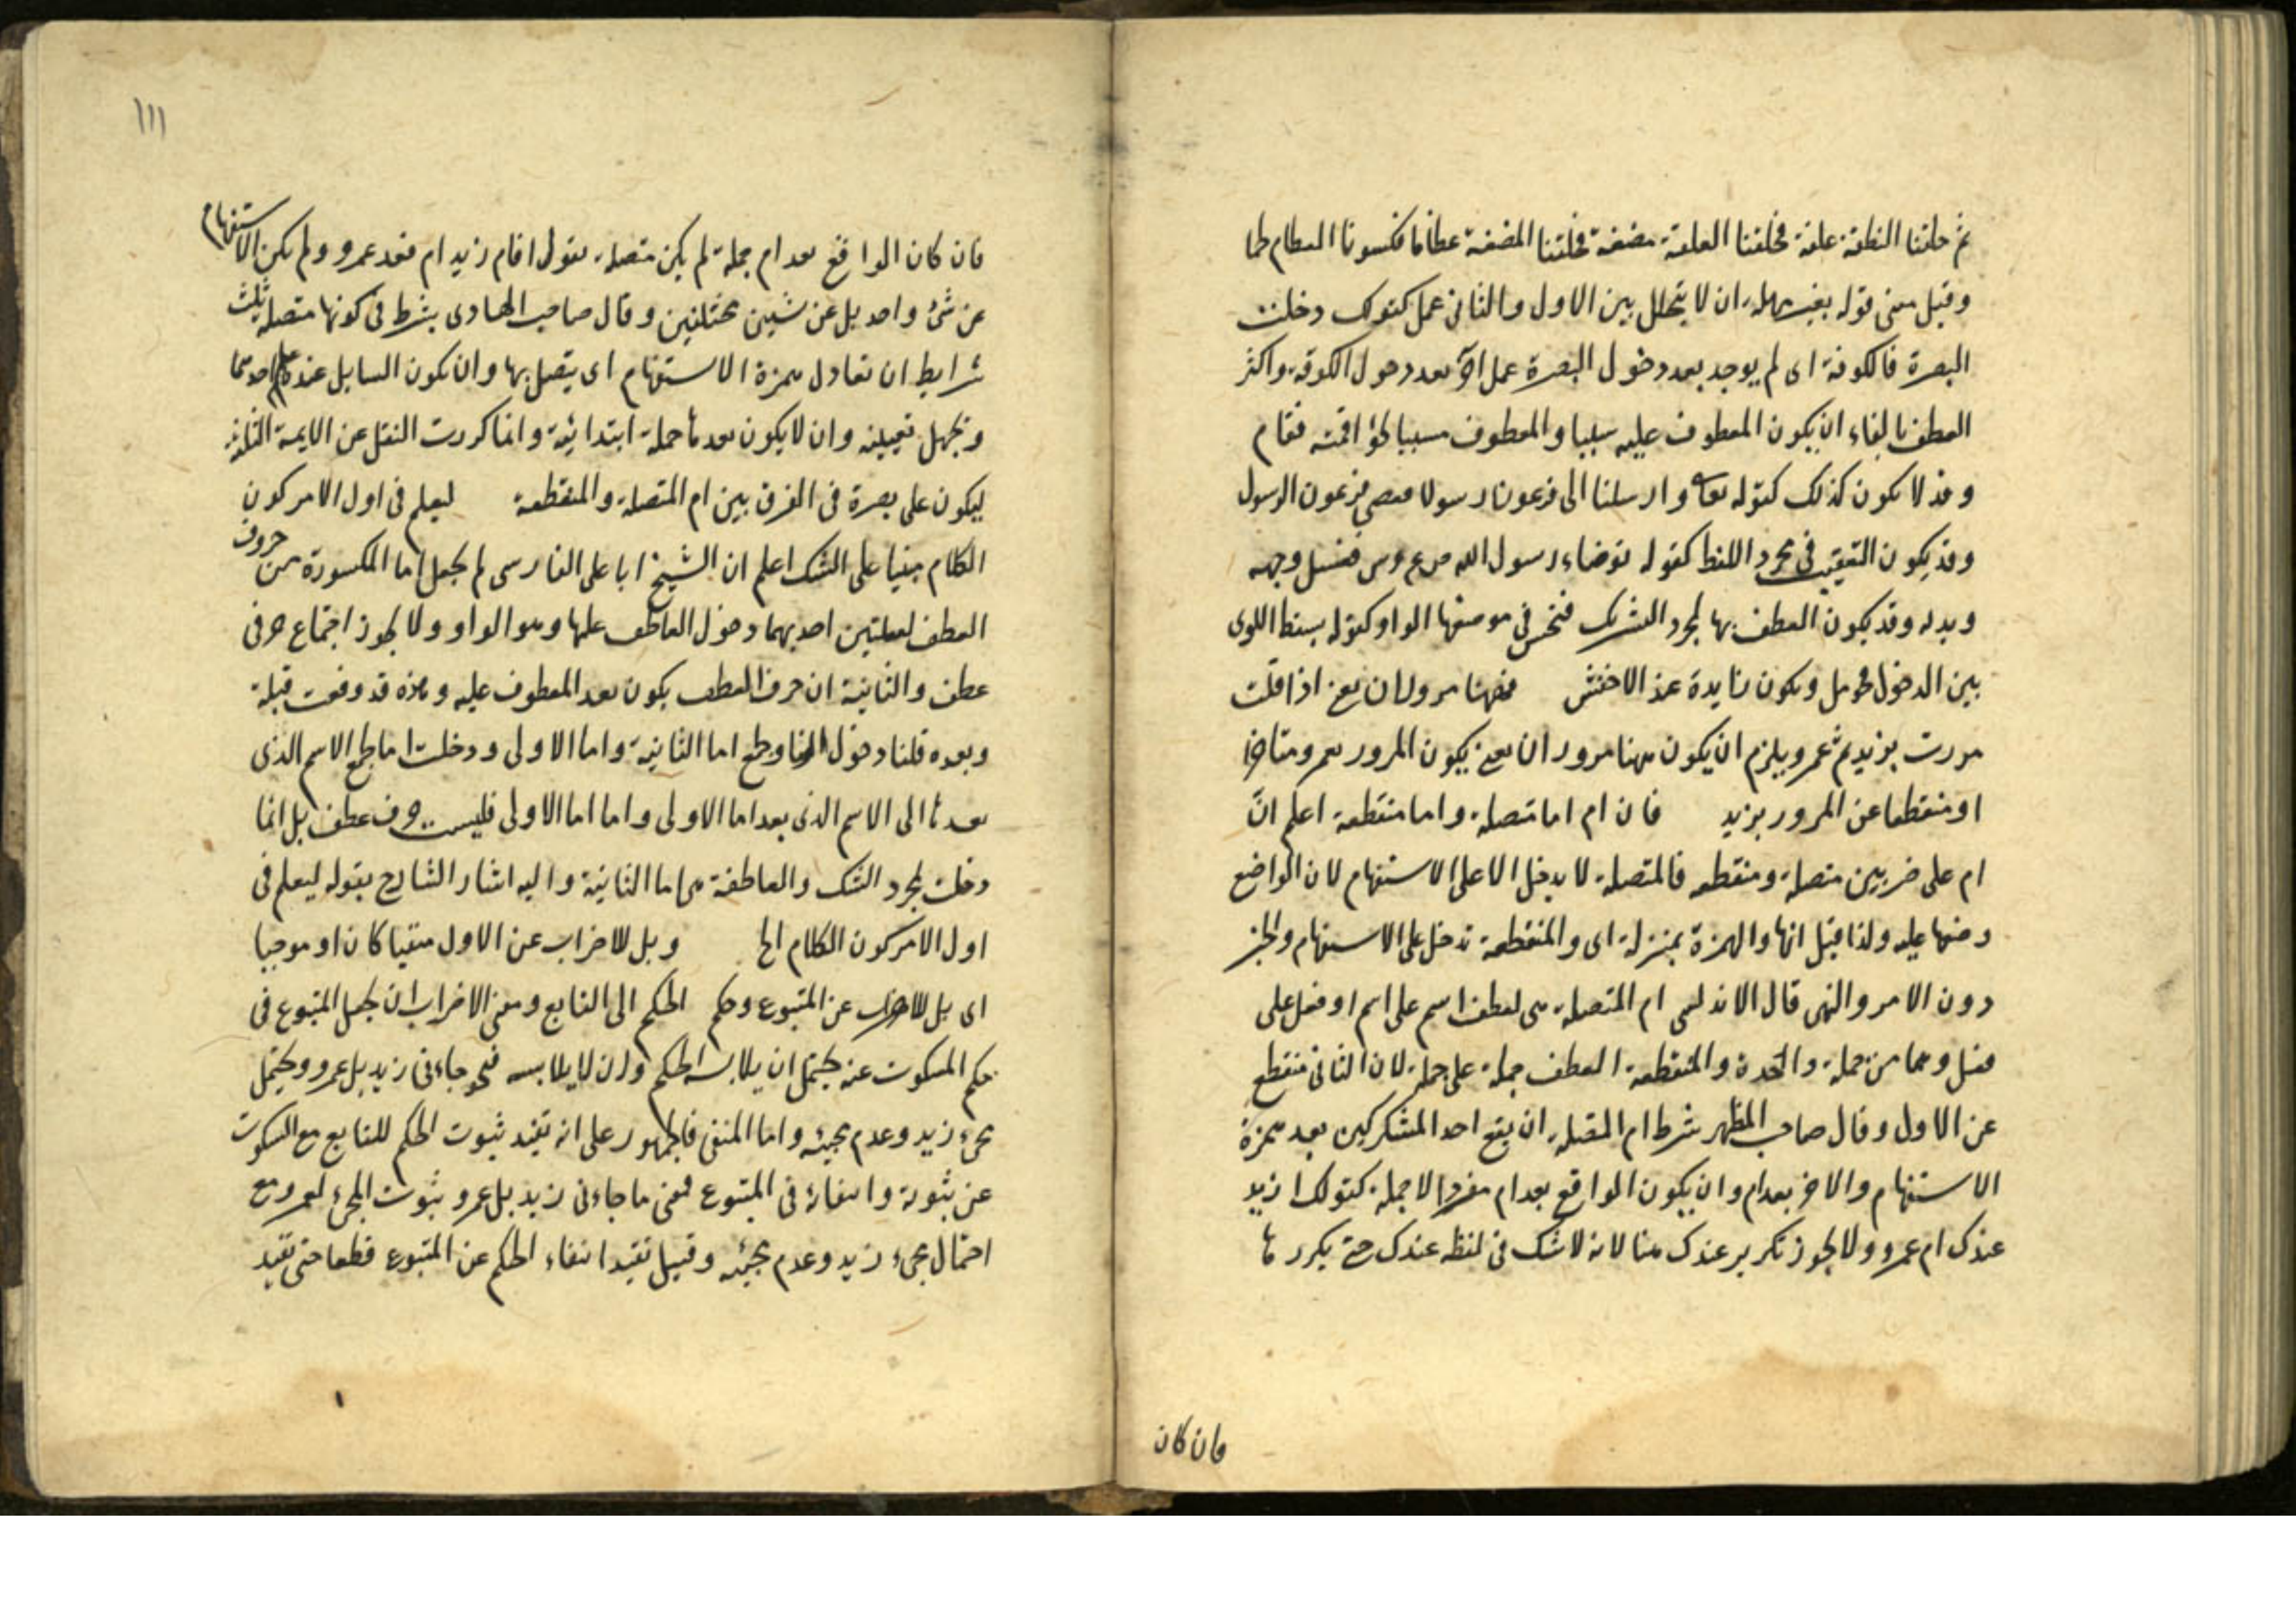 ثم خلقنا النطفة علقة فخلقنا العلقة مضغة فخلقنا المضغة عظاما فكسونا العظام لحما
وقيل معنى قوله بغير مهلة ان لا يتخلل بين الاول والثانى عمل كقولك دخلت
البصرة فالكوفة اى لم يوجد بعد دخول البصرة عمل آخر بعد دخول الكوفة واكثر
العطف بالفاء ان يكون المعطوف عليه سببا والمعطوف مسببا نحو اقمته فقام
وقد لا يكون كذلك كقوله تعالى وارسلنا الى فرعون رسولا فعصى فرعون الرسول
وقد يكون التعقيب فى مجرد اللفظ كقوله توضاء رسول الله فغسل وجهه
ويديه وقد يكون العطف بها لمجرد التشريك فتحسن فى موضعها الواو كقوله بسقط اللوى
بين الدخول فحومل ويكون زايدة عند الاخفش فههنا مروران يعنى اذا قلت
مررت بزيد ثم عمرو يلزم ان يكون ههنا مروران يعنى يكون المرور بعمرو متاخرا
او منقطعا عن المرور بزيد فان ام اما متصلة واما منقطعة اعلم ان
ام على ضربين متصلة ومنقطعة فالمتصلة لا يدخل الا على الاستفهام لان الواضع
وضعها عليه ولذا قيل انها والهمزة بمنزلة اى والمنقطعة تدخل على الاستفهام والخبر
دون الامر والنهى قال الاندلسى ام المتصلة هى لعطف اسم على اسم او فعل على
فعل وهما من جملة واحدة والمنقطعة لعطف جملة على جملة لان الثانى منقطع
عن الاول وقال صاحب المظهر شرط ام المتصلة ان يقع احد المشتركين بعد همزة
الاستفهام والاخر بعد ام وان يكون الواقع بعد ام مفردا لا جملة كقولك ازيد
عندك ام عمرو ولا يجوز تكرير عندك هنا لانه لا شك فى لفظه عندك حتى يكررها
فان كان
١١١
فان كان الواقع بعد ام جملة لم يكن متصلة تقول اقام زيد ام قعد عمرو ولم يكن الاستفهام
عن شئ واحد بل عن شيئين مختلفين وقال صاحب الهادى يشترط فى كونها متصلة ثلث
شرايط ان تعادل همزة الاستفهام اى يتصل بها وان يكون السايل عنده علم احدهما
ويجهل تعيينه وان لا يكون بعدها جملة ابتدائية وانما كررت النقل عن الايمة الثلثة
ليكون على بصرة فى الفرق بين ام المتصلة والمنقطعة ليعلم فى اول الامر كون
الكلام مبنيا على الشك اعلم ان الشيخ ابا على الفارسى لم يجعل اما المكسورة من حروف
العطف لعلتين احديهما دخول العاطف عليها وهو الواو ولا يجوز اجتماع حرفى
عطف والثانية ان حرف العطف يكون بعد المعطوف عليه وهذه قد وقعت قبله
وبعده قلنا دخول اما الثانية واما الاولى ودخلت اما الاسم الذى
بعدها الى الاسم الذى بعد اما الاولى واما اما الاولى فليست حرف عطف بل انما
دخلت لمجرد الشك والعاطفة هى اما الثانية واليه اشار الشارح بقوله ليعلم فى
اول الامر كون الكلام الخ وبل للاضراب عن الاول منفيا كان او موجبا
اى بل للاضراب عن المتبوع وحكم الحكم الى التابع ومعنى الاضراب ان يجعل المتبوع فى
حكم المسكوت عنه يحتمل ان يلابسه الحكم وان لا يلابسه فنحو جاءنى زيد بل عمرو يحتمل
مجئ زيد وعدم مجيئه واما المنفى فالجمهور على انه يفيد ثبوت الحكم للتابع مع السكوت
عن ثبوته وانتفائه فى المتبوع فمعنى ما جاءنى زيد بل عمرو ثبوت المجئ لعمرو مع
احتمال مجئ زيد وعدم مجيئه وقيل تفيد انتفاء الحكم عن المتبوع قطعا حتى تفيد